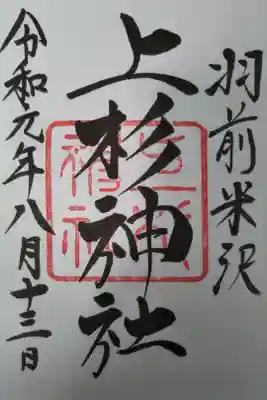 羽前米沢
上杉神社
令和元年八月十三日